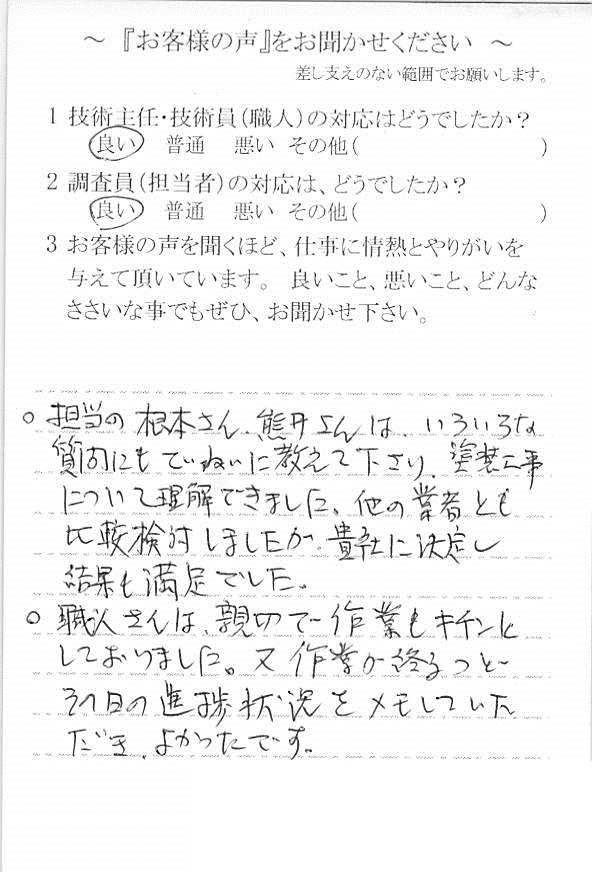 ~ 『お客様の声』をお聞かせください ~
差し支えのない範囲でお願いします。
1 技術主任・技術員(職人)の対応はどうでしたか?
良い 普通 悪い その他( )
2 調査員(担当者)の対応は、どうでしたか?
良い 普通 悪い その他( )
3 お客様の声を聞くほど、仕事に情熱とやりがいを
与えて頂いています。 良いこと、悪いこと、どんな
ささいな事でもぜひ、お聞かせ下さい。
○ 担当の根本さん、熊井さんは、いろいろな
質問にもていねいに教えて下さり、塗装工事
について理解できました、他の業者とも
比較検討しましたが、貴社に決定し
結果も満足でした。
○ 職人さんは、親切で作業もキチンと
しておりました。又作業が終るつど
その日の進捗状況をメモしていた
だき、よかったです。